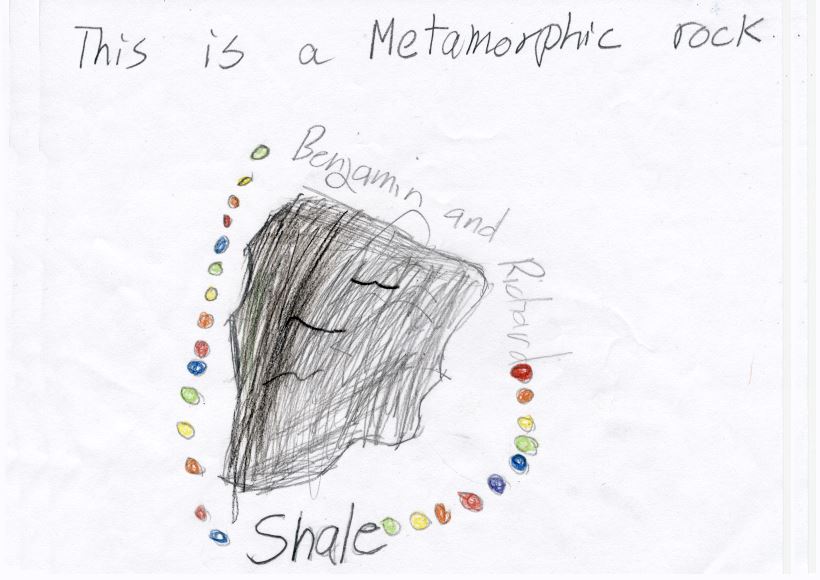 This is a Metamorphic rock.
Benjamin and Richard
Shale